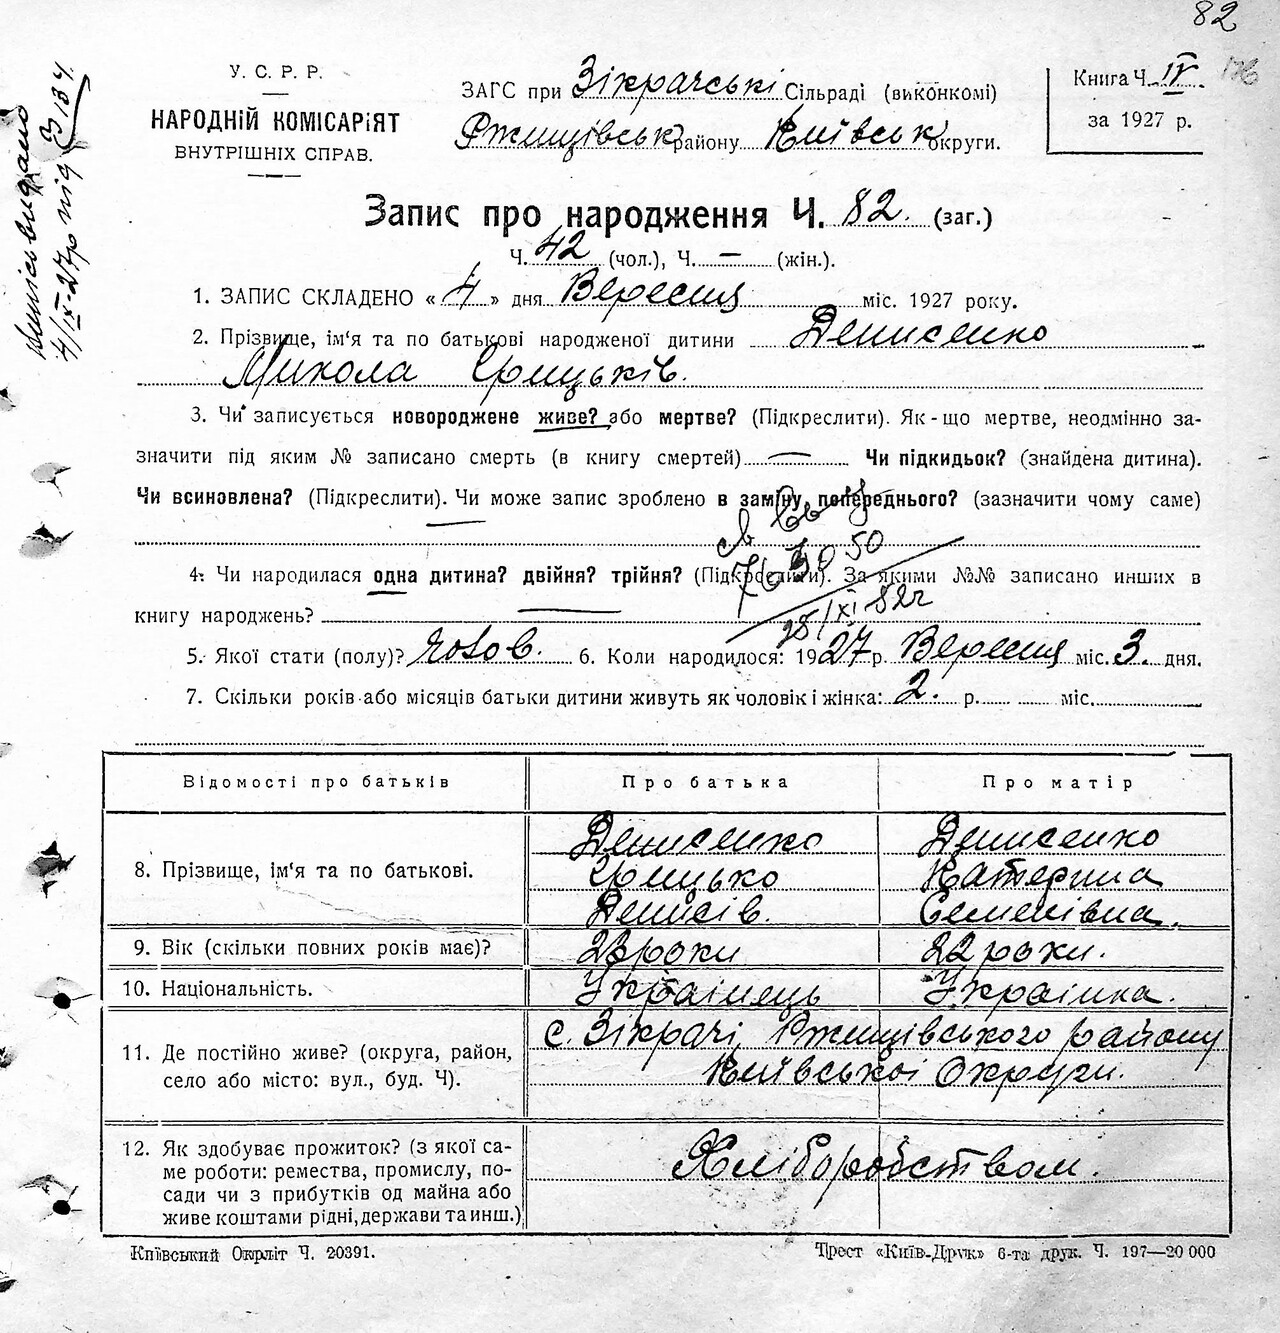 82
176
У. С. Р. Р.
НАРОДНІЙ КОМІСАРІЯТ
ВНУТРІШНІХ СПРАВ.
ЗАГС при Зікрачські Сільраді (виконкомі)
Ржищівськ району Київськ округи.
Книга Ч. IV
за 1927 р.
Випісь видано
4/IX-27р під З 134
Запис про народження Ч. 82. (заг.)
Ч. 42 (чол.), Ч. — (жін.).
1. ЗАПИС СКЛАДЕНО « 4 » дня Вересня міс. 1927 року.
2. Прізвище, ім‘я та по батькові народженої дитини Денисенко
Микола Грицьків.
3. Чи записується новороджене живе? або мертве? (Підкреслити). Як-що мертве, неодмінно за-
значити під яким № записано смерть (в книгу смертей) — Чи підкидьок? (знайдена дитина).
Чи всиновлена? (Підкреслити). Чи може запис зроблено в заміну попереднього? (зазначити чому саме)
4. Чи народилася одна дитина? двійня? трійня? (Підкреслити). За якими №№ записано инших в
книгу народжень?
28/XI 82г
5. Якої стати (полу)? чолов. 6. Коли народилося: 1927 р. Вересня міс. 3. дня.
7. Скільки років або місяців батьки дитини живуть як чоловік і жінка: 2. р. міс.
Відомості про батьків Про батька Про матір
8. Прізвище, ім‘я та по батькові.
Денисенко Денисенко
Грицько Катерина
Денисів. Семенівна.
9. Вік (скільки повних років має)? 23 роки 22 роки.
10. Національність. Українець Українка.
11. Де постійно живе? (округа, район,
село або місто: вул., буд. Ч).
с. Зікрачі Ржищівського району
Київської Округи.
12. Як здобуває прожиток? (з якої са-
ме роботи: ремества, промислу, по-
сади чи з прибутків од майна або
живе коштами рідні, держави та инш.)
Хліборобством.
Київський Окрліт Ч. 20391.
Трест «Київ-Друк» 6-та друк. Ч. 197—20 000